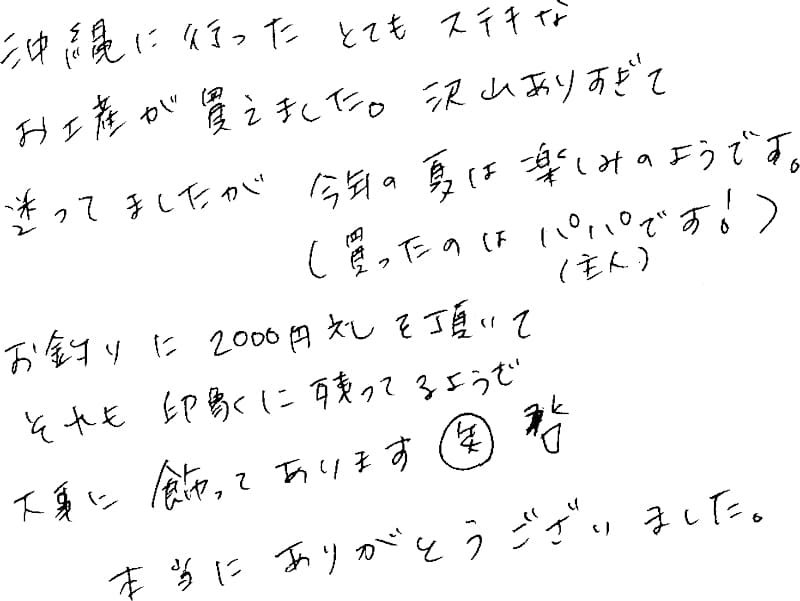 沖縄に行った とてもステキな
お土産が買えました。沢山ありすぎて
迷ってましたが 今年の夏は楽しみのようです。
(買ったのは パパです!)
(主人)
お釣りに 2000円札を頂いて
それも 印象に残ってるようで
大事に 飾ってあります 笑
本当に ありがとうございました。